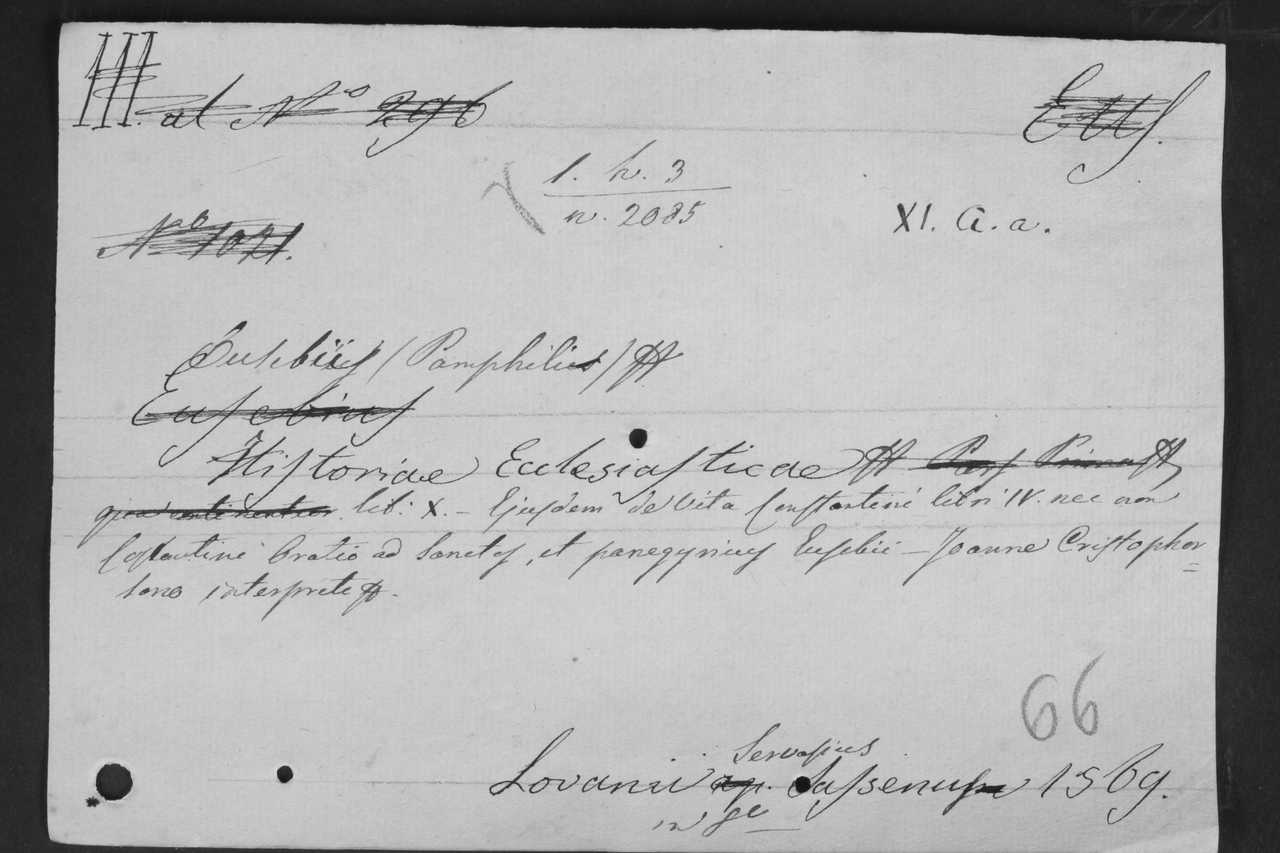 III. al No 296
1. h. 3
n. 2085
XI. a. a.
No 1021.
Eusebius (Pamphilius)
Eusebius
Historiae Ecclesiasticae Pars Prima
lib: X. – Ejusdem de Vita Constantini libri IV. nec non
Constantini Oratio ad Sanctos, et panegyricus Eusebii – Joanne Cristophor=
sono interprete.
66
Servasius
Lovanii ap. Sassenus 1569.
in